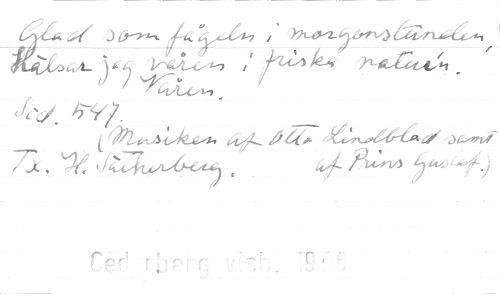 Glad som fågeln i morgonstunden,
Hälsar jag våren i friska natur'n.
Våren.
Sid. 547.
(Musiken af Otto Lindblad samt
Tx. H. Sätherberg. af Prins Gustaf.)
Ced rberg visb. 19